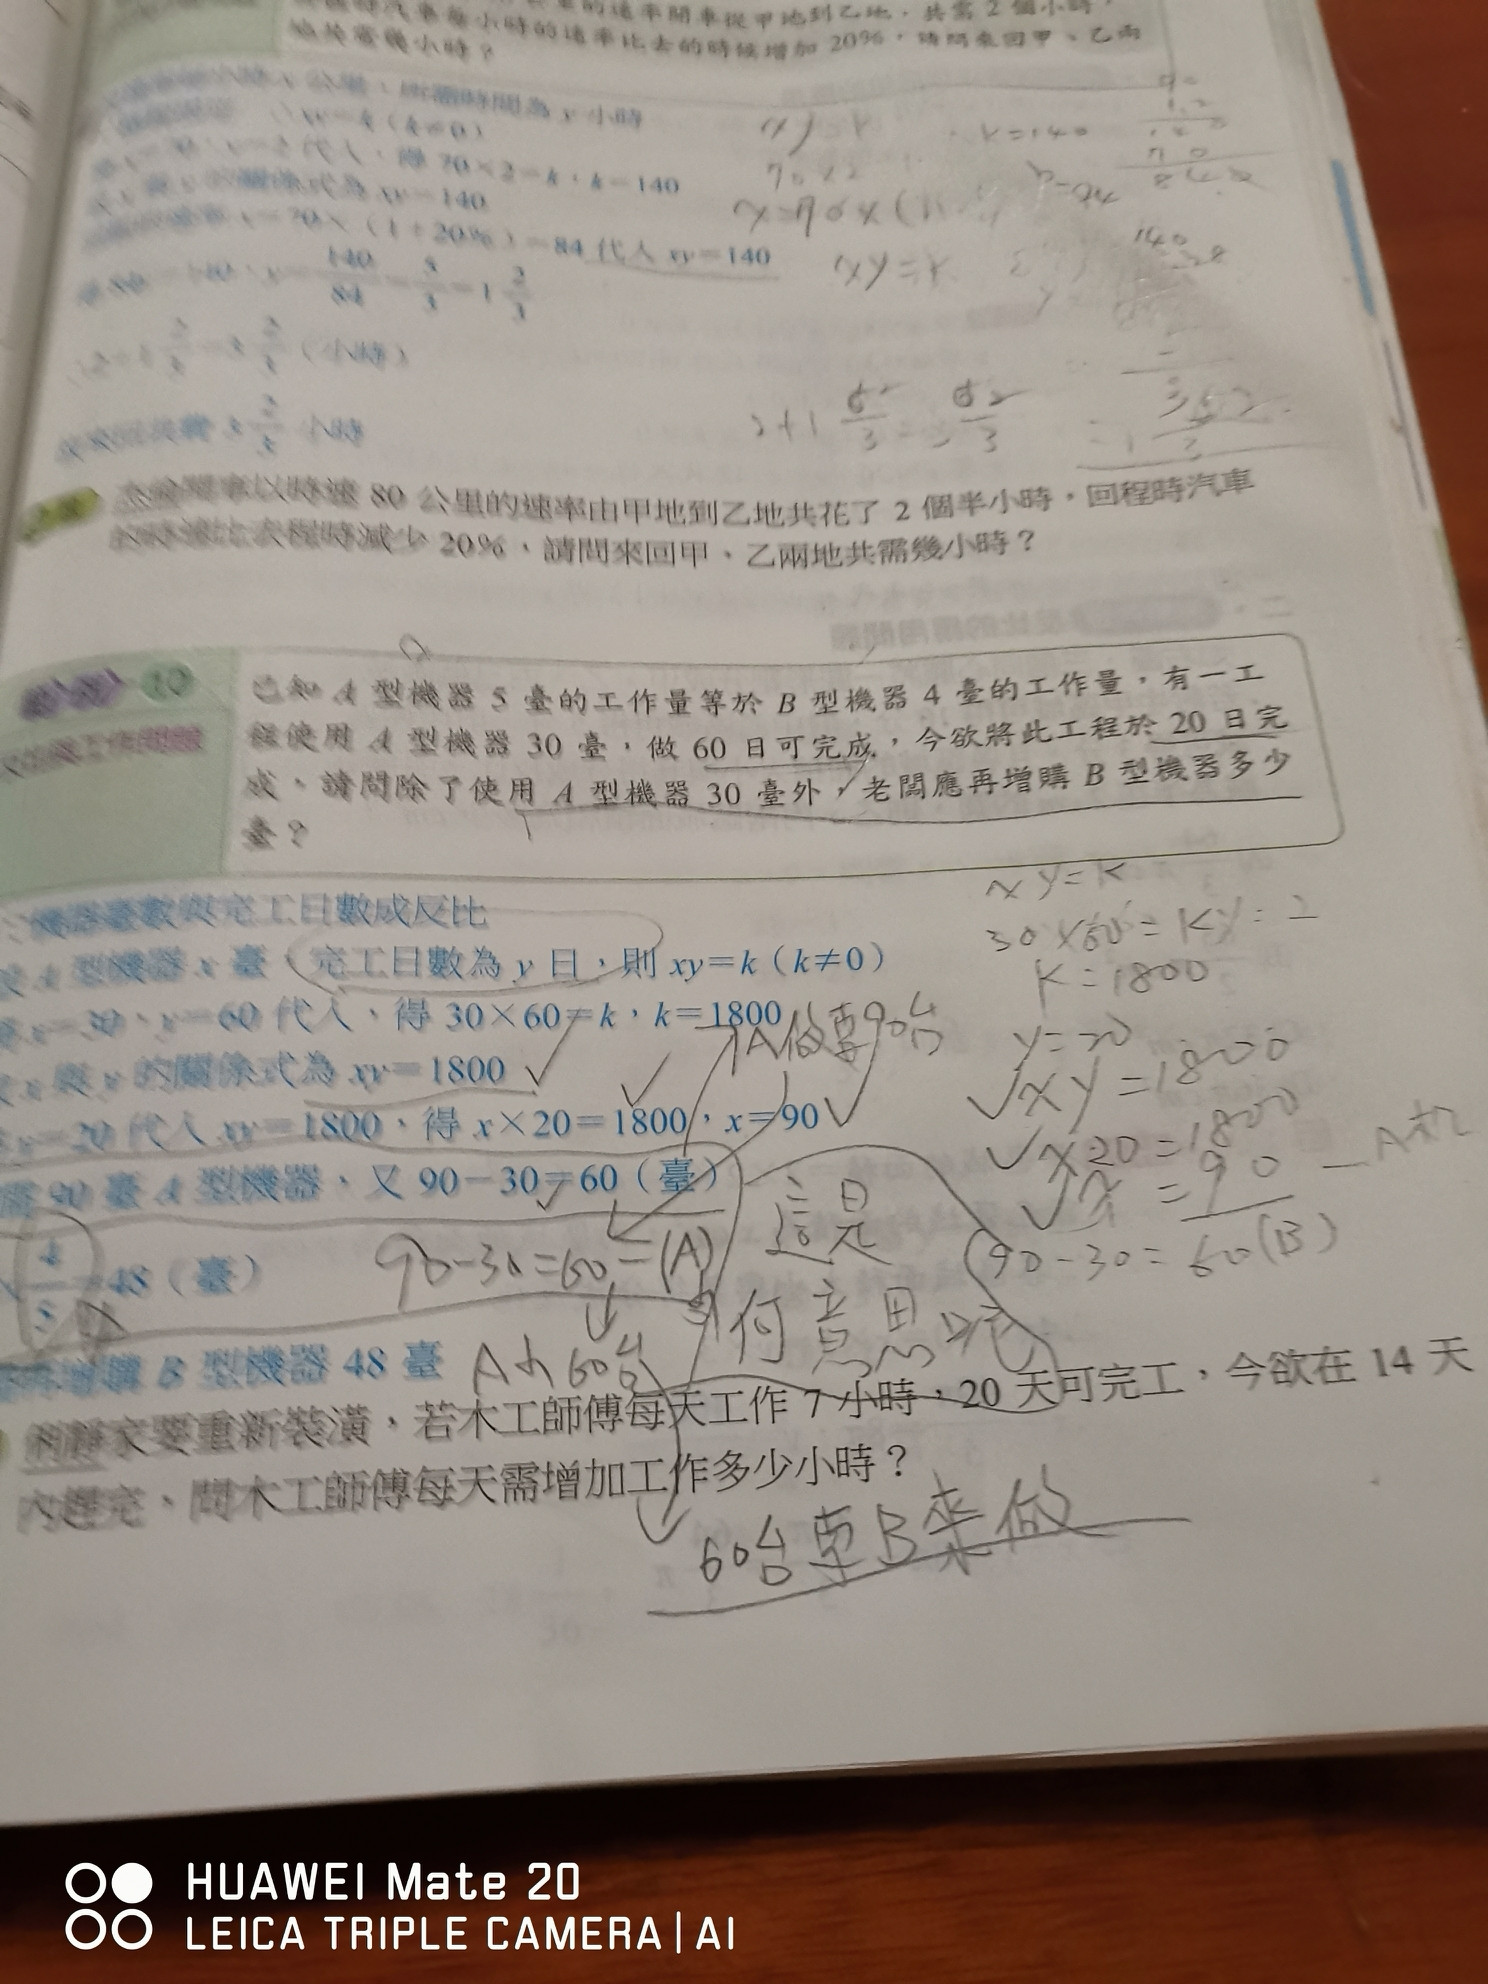 的速率開車從甲地到乙地，共需 2 個小時，
汽車每小時的速率比去的時候增加 20%，請問來回甲、乙兩
地共需幾小時？
x 公里，所需時間為 y 小時
xy=k（k≠0）
代入，得 70×2=k，k=140
的關係式為 xy=140
x=70×（1+20%）=84 代入 xy=140
140/84=5/3=1 2/3
2+1 2/3=3 2/3（小時）
3 2/3 小時
xy=k
k=140
70×2
xy=k
140
開車以時速 80 公里的速率由甲地到乙地共花了 2 個半小時，回程時汽車
的時速比去程時減少 20%，請問來回甲、乙兩地共需幾小時？
10
已知 A 型機器 5 臺的工作量等於 B 型機器 4 臺的工作量，有一工
程使用 A 型機器 30 臺，做 60 日可完成，今欲將此工程於 20 日完
成，請問除了使用 A 型機器 30 臺外，老闆應再增購 B 型機器多少
臺？
機器臺數與完工日數成反比
A 型機器 x 臺，完工日數為 y 日，則 xy=k（k≠0）
x=30，y=60 代入，得 30×60=k，k=1800
x 與 y 的關係式為 xy=1800
y=20 代入 xy=1800，得 x×20=1800，x=90
需 90 臺 A 型機器，又 90−30=60（臺）
4/5=48（臺）
增購 B 型機器 48 臺
xy=k
30×60=k y=2
k=1800
y=20
xy=1800
x20=1800
x=90 A机
90-30=60(B)
A做要90台
90-30=60=(A)
這是
何意思呢
A 60台
家要重新裝潢，若木工師傅每天工作 7 小時，20 天可完工，今欲在 14 天
內趕完，問木工師傅每天需增加工作多少小時？
60台 B來做
HUAWEI Mate 20
LEICA TRIPLE CAMERA | AI